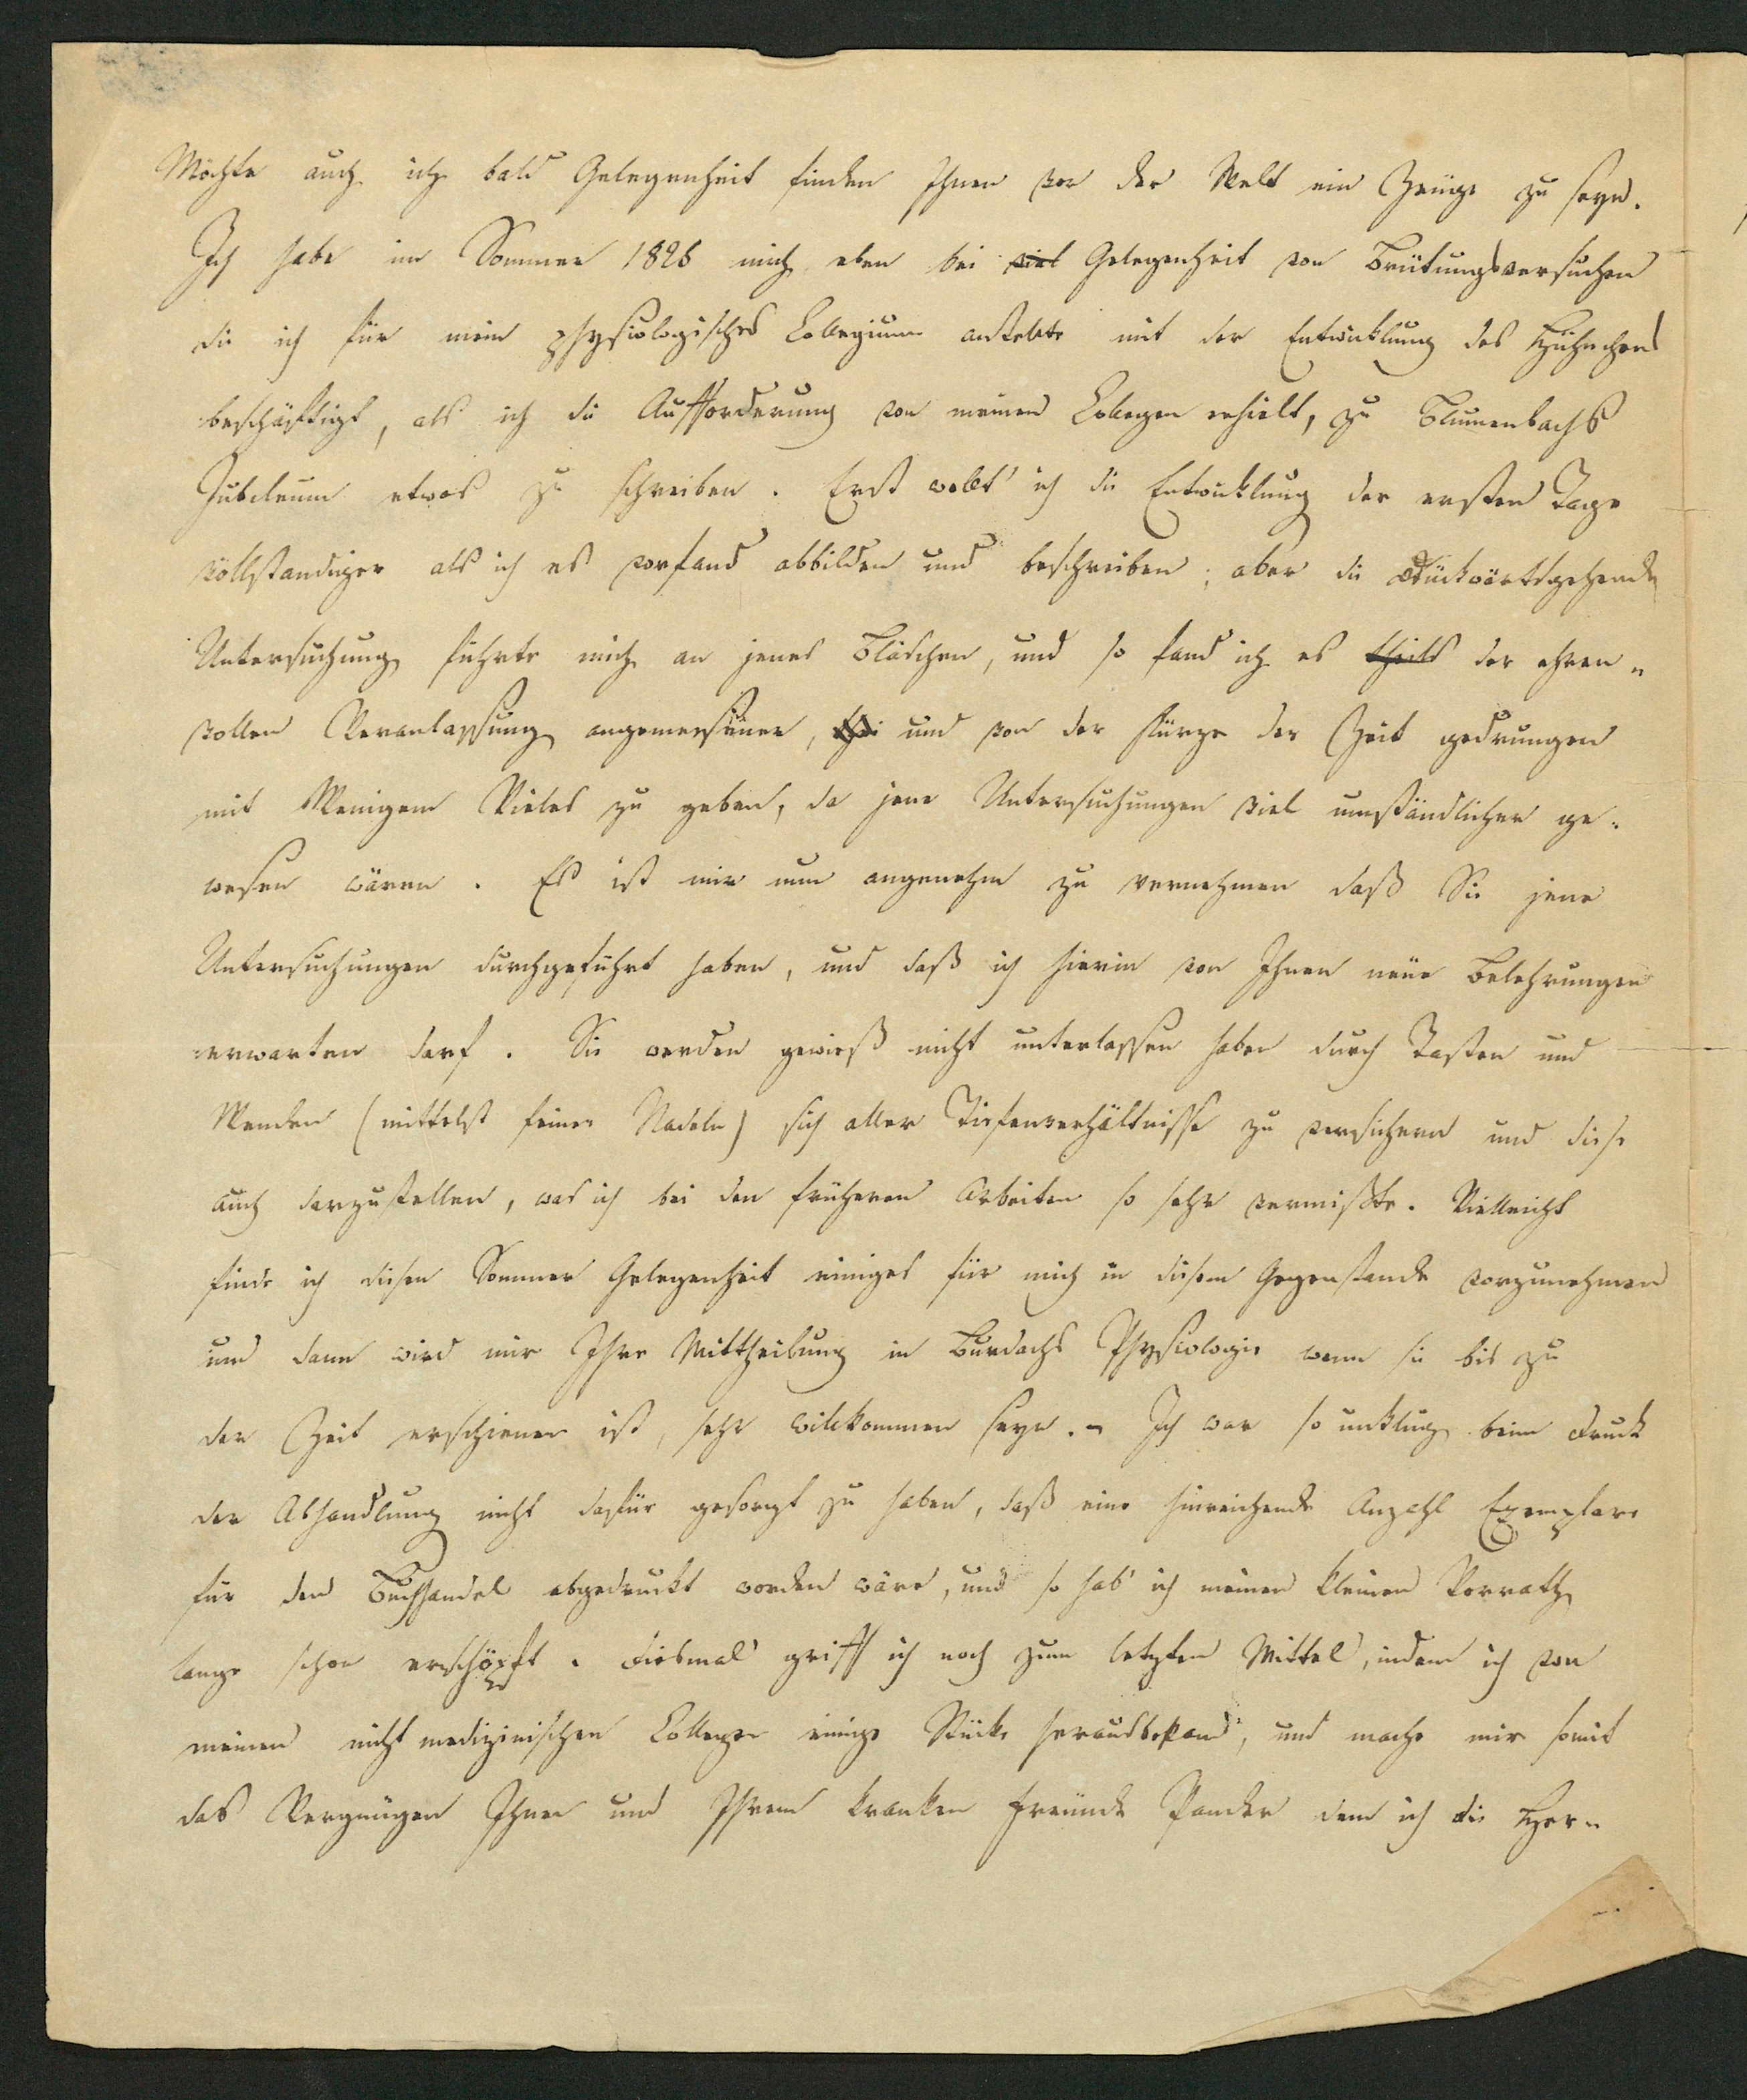 Möchte auch ich bald Gelegenheit finden Ihnen vor der Welt ein Zeuge zu seyn.
Ich habe im Sommer 1825 mich eben bei viel Gelegenheit von Brütungsversuchen
die ich für mein physiologisches Collegium anstellte mit der Entwicklung des Hühnchens
beschäftigt, als ich die Aufforderung von meinen Collegen erhielt, zu Blumenbachs
Jubileum etwas zu schreiben. Erst wollt' ich die Entwicklung der ersten Tage
vollständiger als ich es vorfand abbilden und beschreiben; aber die Rückwärtsgehende
Untersuchung führte mich an jenes Bläschen, und so fand ich es theils der ehren-
vollen Veranlassung angemessener, und von der Kürze der Zeit gedrungen
mit Wenigem Vieles zu geben, da jene Untersuchungen viel umständlicher ge-
wesen wären. Es ist mir nun angenehm zu vernehmen daß Sie jene
Untersuchungen durchgeführt haben, und daß ich hierin von Ihnen neue Belehrungen
erwarten darf. Sie werden gewiß nicht unterlassen haben durch Tasten und
Wenden (mittelst feiner Nadeln) sich aller Tiefenverhältnisse zu versichern und diese
auch darzustellen, was ich bei den früheren Arbeiten so sehr vermißte. Vielleicht
finde ich diesen Sommer Gelegenheit einiges für mich in diesem Gegenstande vorzunehmen
und dann wird mir Ihre Mittheilung in Burdachs Physiologie wenn sie bis zu
der Zeit erschienen ist, sehr willkommen seyn. – Ich war so unklug beim Druck
der Abhandlung nicht dafür gesorgt zu haben, daß eine hinreichende Anzahl Exemplare
für den Buchhandel abgedruckt worden wäre, und so hab' ich meinen kleinen Vorrath
lange schon erschöpft. Diesmal griff ich noch zum letzten Mittel, indem ich von
meinen nicht medizinischen Collegen einige Stücke herausbekam, und mache mir somit
das Vergnügen Ihnen und Ihrem kranken Freunde Pander dem ich die Her-